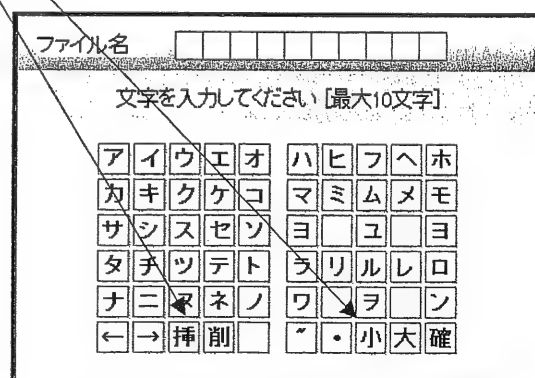 ファイル名
文字を入力してください [最大10文字]
アイウエオ ハヒフヘホ
カキクケコ マミムメモ
サシスセソ ヨ ユ ヨ
タチツテト ラリルレロ
ナニヌネノ ワ ヲ ン
←→挿削 ゛・小大確